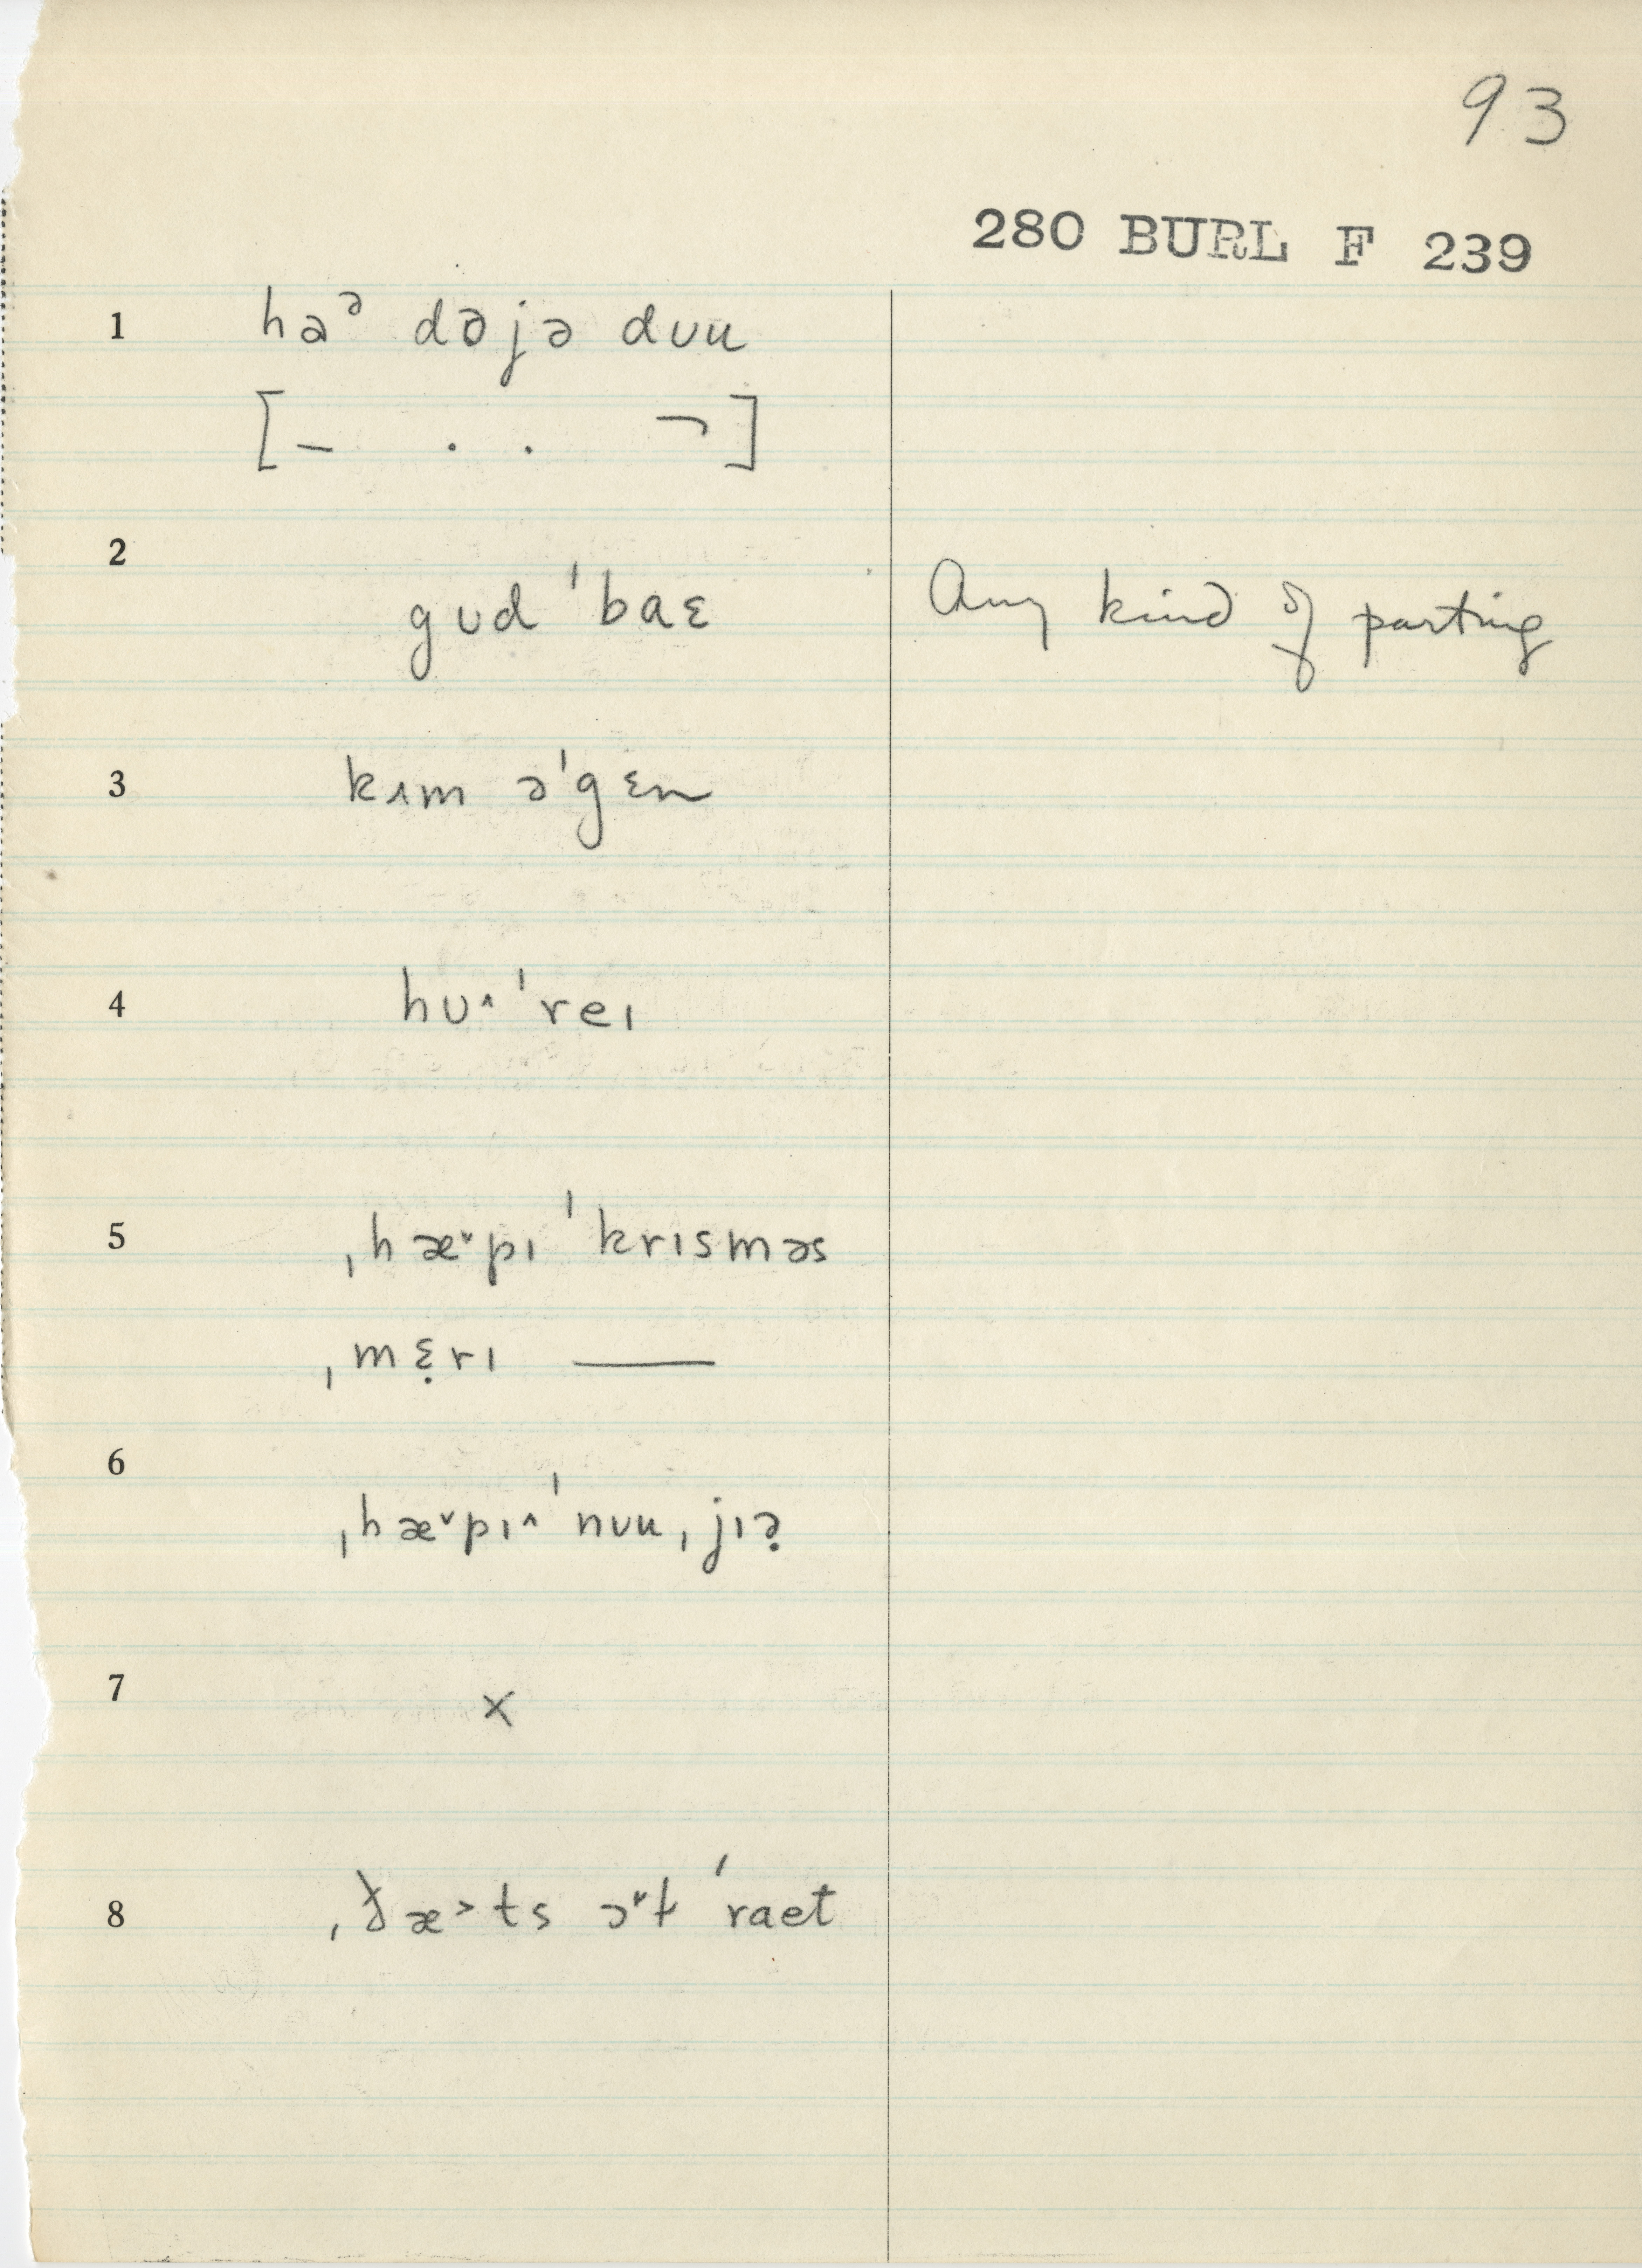 93
280 BURL F 239
1 haᵊ dəjə dᴜu
[– . . ¬]
2 gᴜd ˈbaɛ Any kind of parting
3 kɪm əˈgɛn
4 hᴜ˄ ˈreɪ
5 ˌhæ˅pɪ ˈkrɪsməs
ˌmɛ̣rɪ ——
6 ˌhæ˅pɪ˄ ˈnᴜu ˌjɪə̣
7 x
8 ˌðæ˃ts ɔ˅ɫ ˈraet